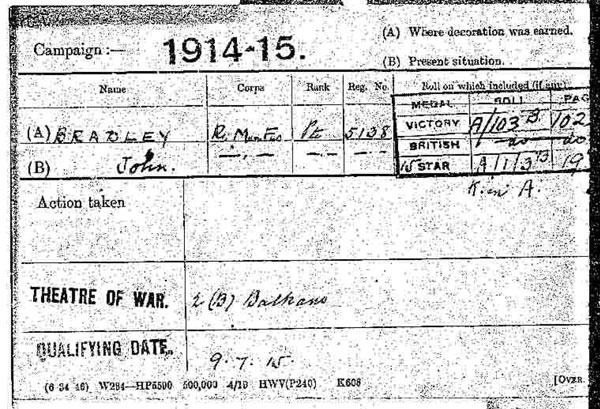 (A) Where decoration was earned.
Campaign :— 1914-15.
(B) Present situation.
Name Corps Rank Reg. No. Roll on which included (if any).
MEDAL ROLL PAG
(A) BRADLEY R. Mun Fus Pte 5138 VICTORY A/103 B 102
BRITISH do do
(B) John. —„— —„— 15 STAR A/1/3 B 19
K. in A.
Action taken
THEATRE OF WAR. 2(B) Balkans
QUALIFYING DATE. 9.7.15.
(6 34 46) W284—HP5590 500,000 4/19 HWV(P240) K608 [OVER.